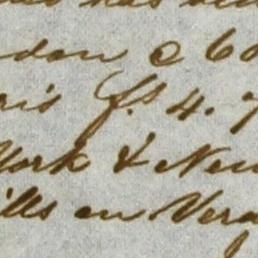 has
don @ 60
ris f.s 4.7
York & New
ills on Vera